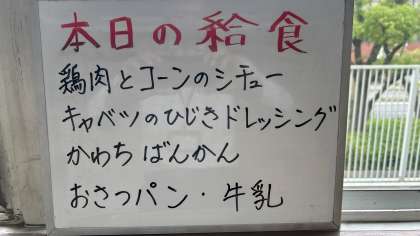 本日の給食
鶏肉とコーンのシチュー
キャベツのひじきドレッシング
かわちばんかん
おさつパン・牛乳